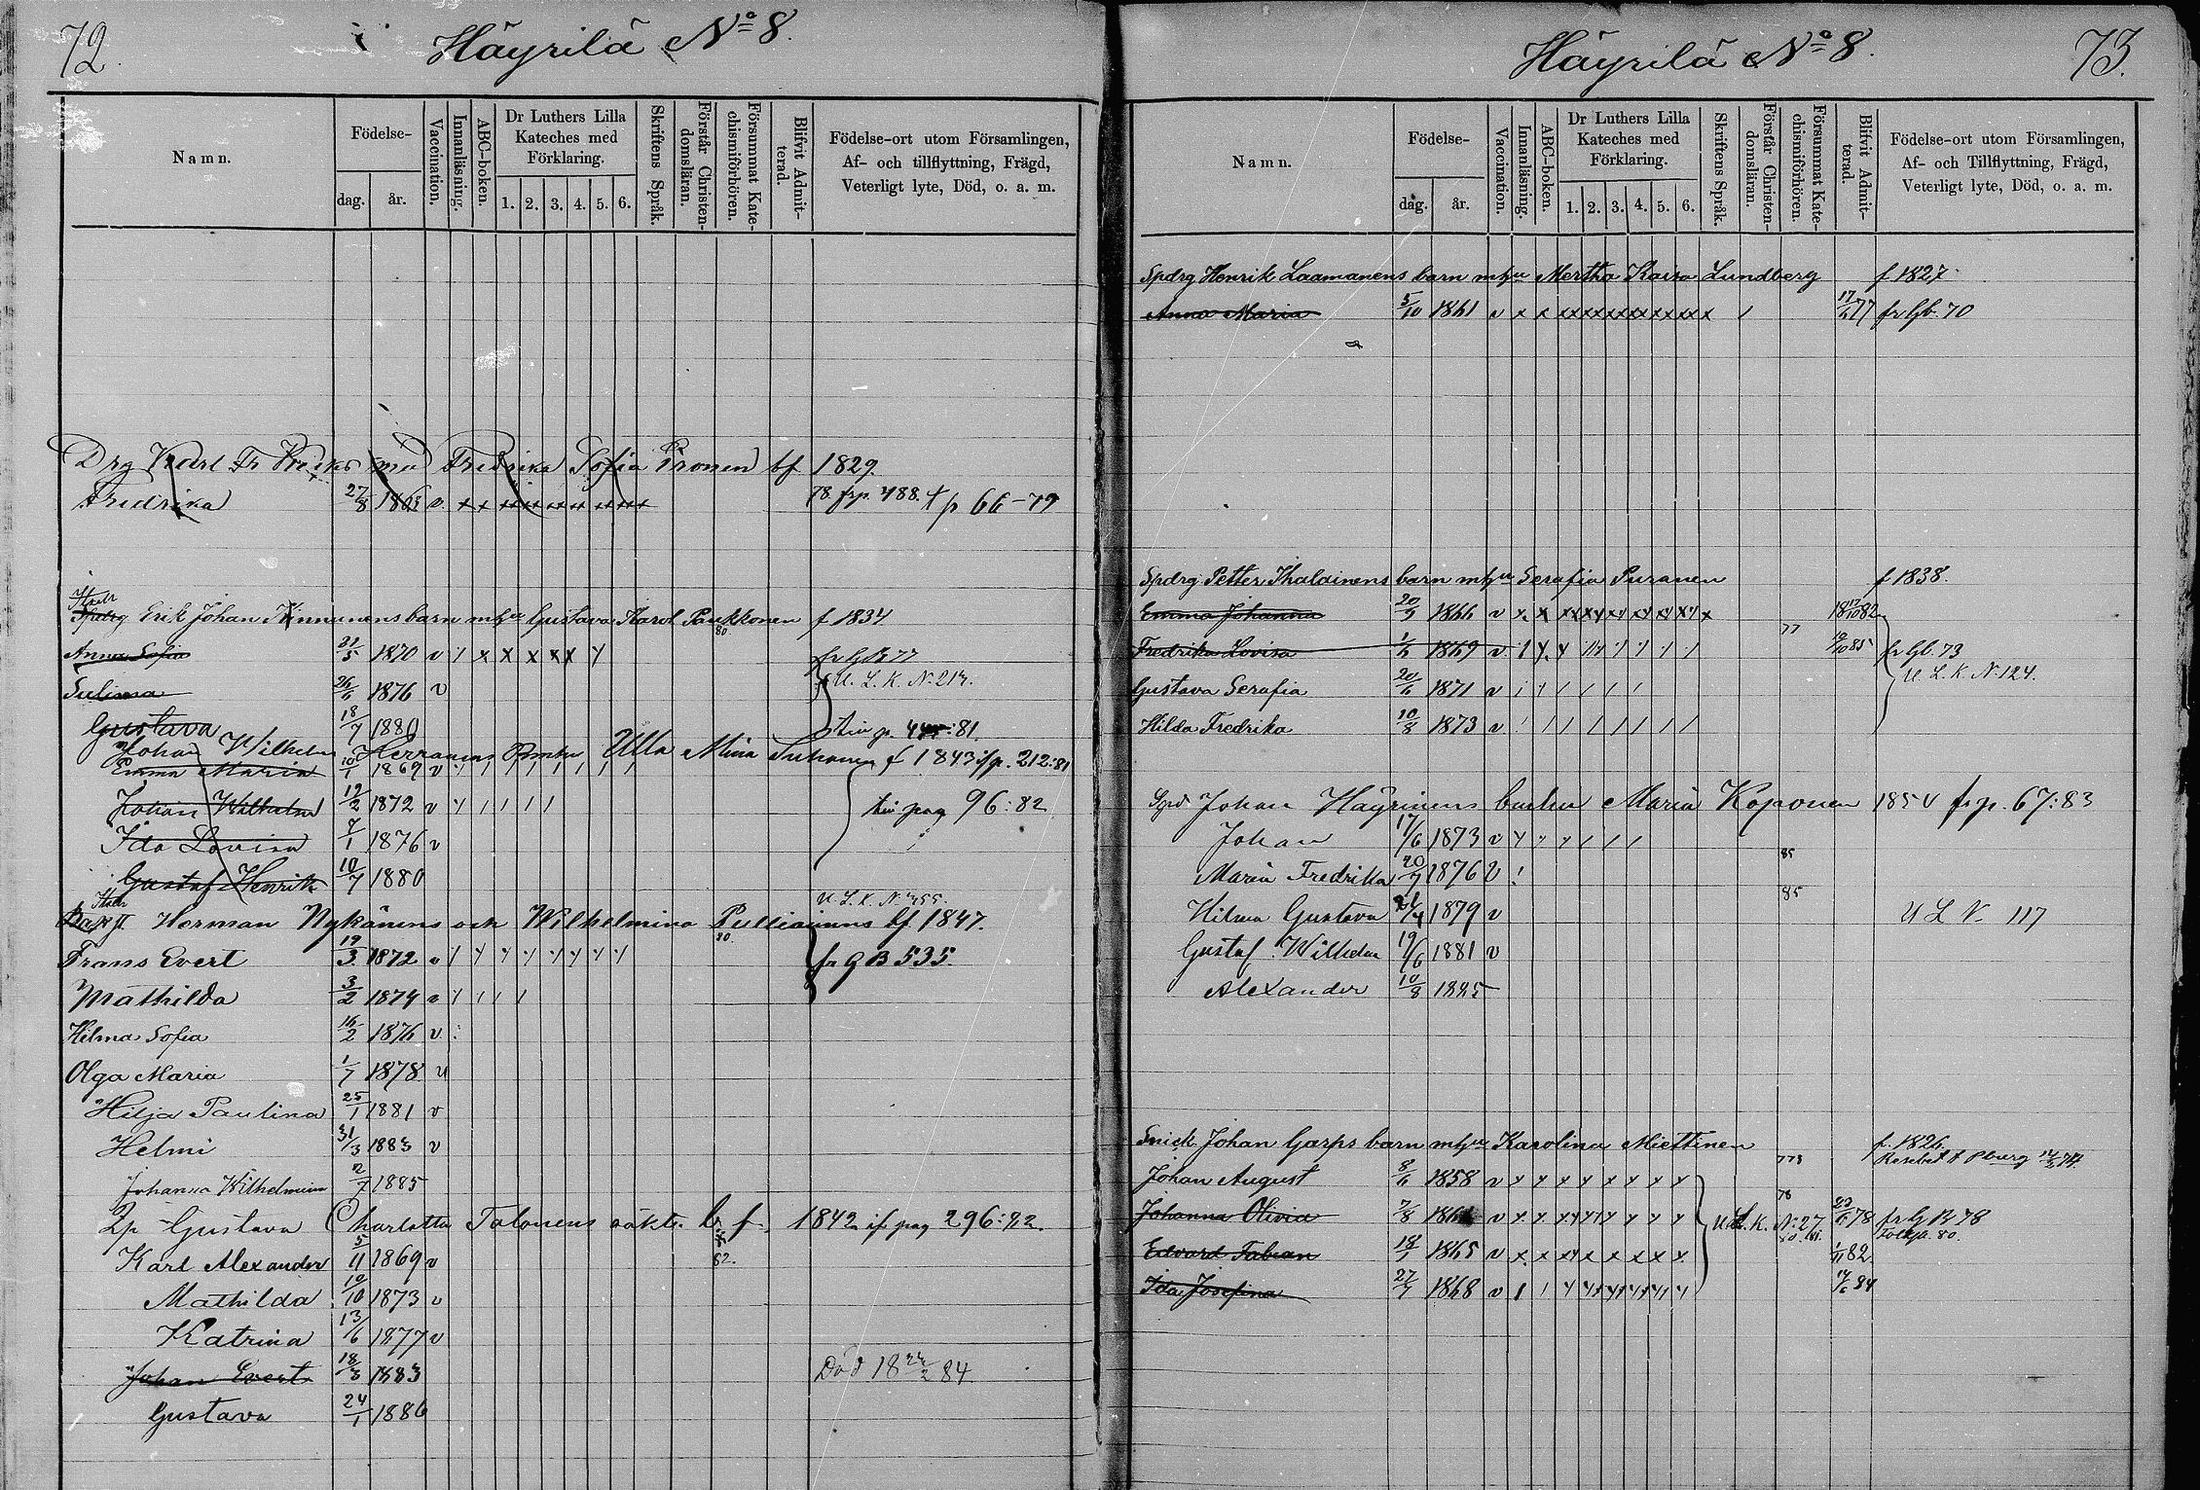 72.
Häyrilä No 8.
Namn.
Födelse-
dag.
år.
Vaccination.
Innanläsning.
ABC-boken.
Dr Luthers Lilla
Kateches med
Förklaring.
1. 2. 3. 4. 5. 6.
Skriftens Språk.
Förstår Christen-
domsläran.
Försummat Kate-
chismiförhören.
Blifvit Admit-
terad.
Födelse-ort utom Församlingen,
Af- och tillflyttning, Frägd,
Veterligt lyte, Död, o. a. m.
Drg Karl Fr Fredrika Sofia Pironen bf 1829.
Fredrika 27/8 1863 v 78 frp. 488. t p 66-79
Spdrg Erik Johan Kinnunens barn m hu Gustava Karol Paukkonen f 1834
80
Anna Sofia 21/5 1870 v fr Gb 77
Sulima 26/6 1876 v U. L. K. N. 217.
Gustava 18/7 1880 till p. :81.
Johan Wilhelm Herranens Ulla Miina Suhonen f 1843 if p. 212:81
Emma Maria 10/1 1869 v
Johan Wilhelm 19/2 1872 v till pag 96:82
Ida Lovisa 7/1 1876 v
Gustaf Henrik 10/7 1880
U. L. K. N. 755.
Herman Nykänens och Wilhelmina Pulliainens bf. 1847.
80.
Frans Evert 19/3 1872 v fr G B 535.
Mathilda 3/2 1874 v
Hilma Sofia 16/2 1876 v
Olga Maria 1/7 1878 v
Hilja Paulina 25/1 1881 v
Helmi 31/3 1883 v
Johanna Wilhelmina 2/7 1885
Gustava Charlotta Talonens oäkta b. f. 1842 if pag 296:82.
82.
Karl Alexander 5/11 1869 v
Mathilda 10/10 1873 v
Katrina 13/6 1877 v
Johan Evert 18/3 1883 Död 18 24/2 84
Gustava 24/1 1886
Häyrilä No 8.
73.
Namn.
Födelse-
dag.
år.
Vaccination.
Innanläsning.
ABC-boken.
Dr Luthers Lilla
Kateches med
Förklaring.
1. 2. 3. 4. 5. 6.
Skriftens Språk.
Förstår Christen-
domsläran.
Försummat Kate-
chismiförhören.
Blifvit Admit-
terad.
Födelse-ort utom Församlingen,
Af- och Tillflyttning, Frägd,
Veterligt lyte, Död, o. a. m.
Spdrg Henrik Laamanens barn m hu Mertha Kaisa Lundberg f 1827
Anna Maria 5/10 1861 v 77 fr Gb. 70
Spdrg Petter Ikalainens barn m hu Serafia Puranen f 1838.
Emma Johanna 20/9 1866 v 82
77
Fredrika Lovisa 1/6 1869 v 85 fr Gb. 73
Gustava Serafia 20/6 1871 v U. L. K. N. 124.
Hilda Fredrika 10/8 1873 v
Johan Häyrinens Maria Koponen 1850 fr p. 67:83
Johan 17/6 1873 v
85
Maria Fredrika 20/7 1876 v
85
Hilma Gustava 1879 v U L N. 117
Gustaf Wilhelm 19/6 1881 v
Alexander 10/8 1885
Snick Johan Garps barn m hu Karolina Miettinen f. 1826
Johan August 8/6 1858 v
78
Johanna Olivia 7/8 v U. L. K. N. 27. 78 fr G B 78
Edvard Fabian 18/1 1865 v 82
Ida Josefina 1868 v 84